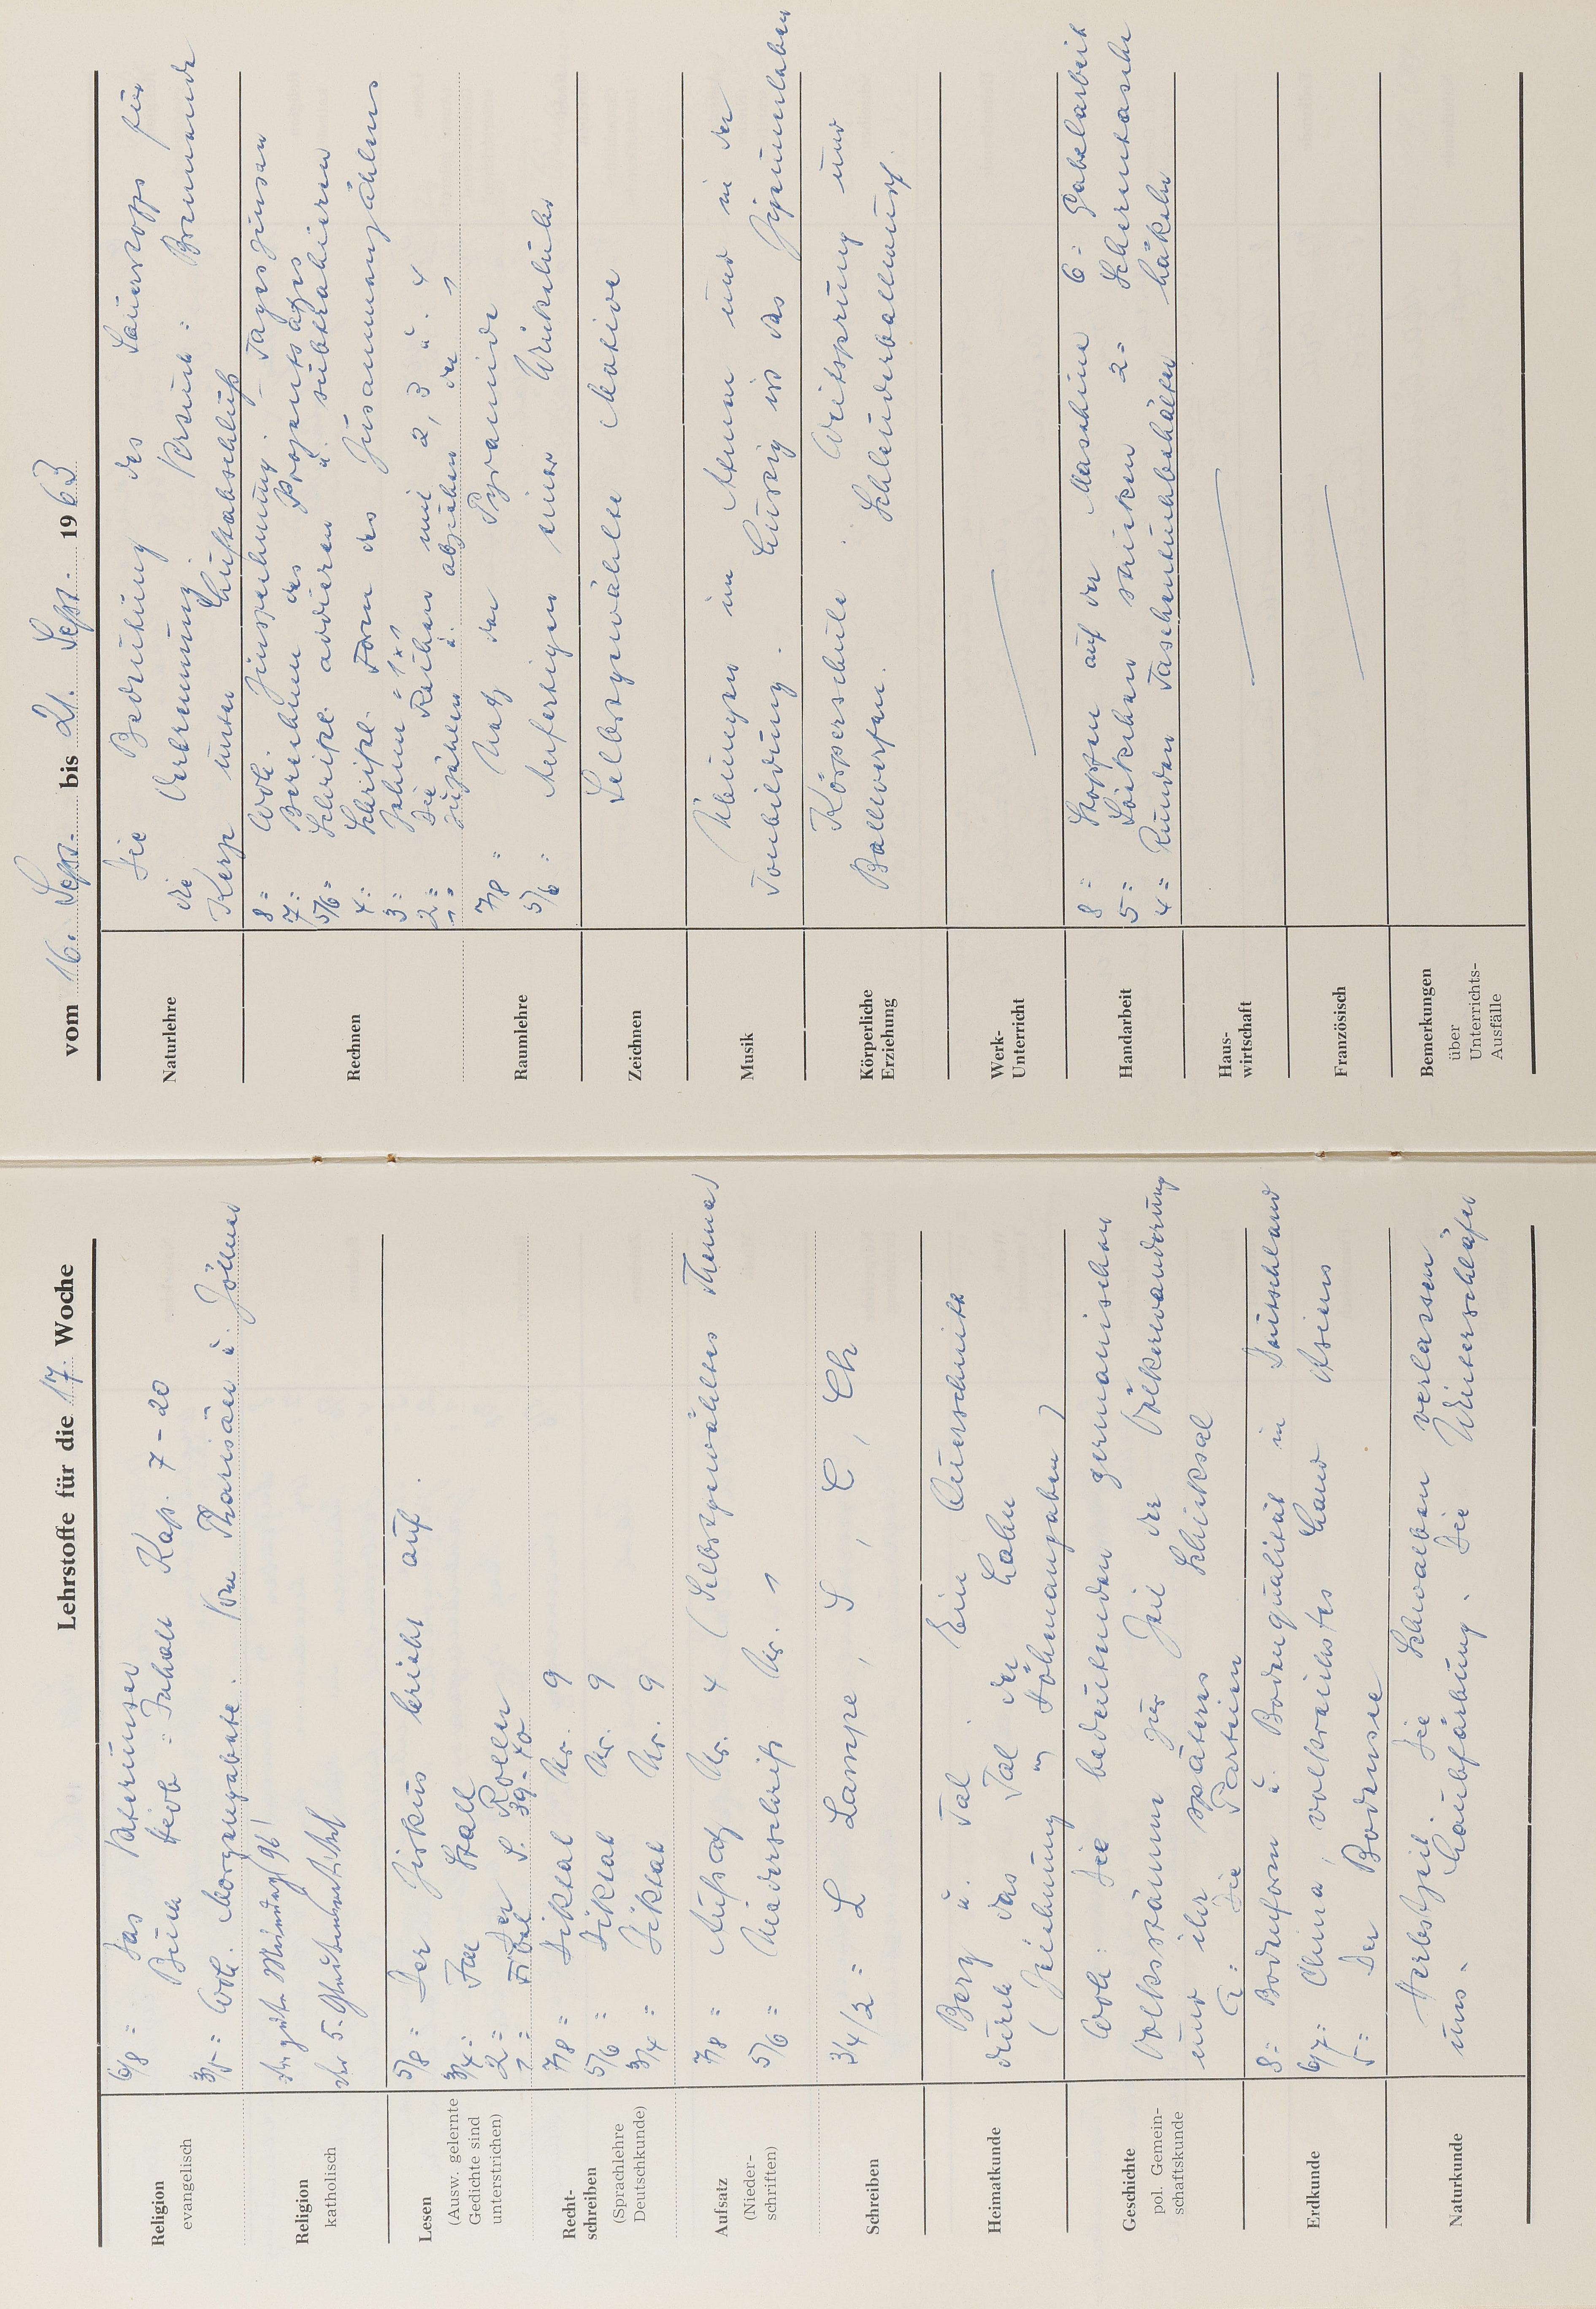 Lehrstoffe für die 17. Woche
Religion
evangelisch
6/8 = Das Vaterunser
Buch Hiob = Inhalt Kap. 7-20
3/5 = Wdh. Morgengebete. Vom Pharisäer u. Zöllner
Religion
katholisch
der 5. Glaubensartikel
Lesen
(Ausw. gelernte
Gedichte sind
unterstrichen)
5/8 = Der Zirkus bricht auf.
3/4 = Im Stall
2 = Der Roller
1 = Fibel S. 39-40
Recht-
schreiben
(Sprachlehre
Deutschkunde)
7/8 = Diktat Nr. 9
5/6 = Diktat Nr. 9
3/4 = Diktat Nr. 9
Aufsatz
(Nieder-
schriften)
7/8 = Aufsatz Nr. 4 (Selbstgewähltes Thema)
5/6 = Niederschrift Nr. "
Schreiben
3/4/2 = L Lampe, S, C, Ch
Heimatkunde
Berg u. Tal. Ein Querschnitt
durch das Tal der Lahn
(Zeichnung m Höhenangaben)
Geschichte
pol. Gemein-
schaftskunde
Wdh: Die bedeutenden germanischen
Volksstämme zur Zeit der Völkerwanderung
und ihr späteres Schicksal
G = Die Parteien
Erdkunde
8 = Bodenform u. Bodenqualität in Deutschland
6/7 = China, volkreichstes Land Asiens
5 = Der Bodensee
Naturkunde
Herbstzeit. Die Schwalben verlassen
uns. Laubfärbung. Die Winterschläfer
vom 16. Sept. bis 21. Sept. 1963
Naturlehre
Die Bedeutung des Sauerstoffs für
die Verbrennung. Versuch: Brennende
Kerze unter Luftabschluß
Rechnen
8 = Wdh. Zinsrechnung. - Tageszinsen
7 = Berechnen des Prozentsatzes
5/6 = Schriftl. addieren u. subtrahieren
4 = Schriftl. Form des Zusammenzählens
3 = Zehner : 1x1
2 = Die Reihen mit 2, 3 u. 4
1 = Zuzählen u. abziehen der 1
Raumlehre
7/8 = Netz der Pyramide
5/6 = Anfertigen eines Würfels
Zeichnen
Selbstgewählte Motive
Musik
Übungen im Atmen und in der
Tonbildung. Lustig ist das Zigeunerleben
Körperliche
Erziehung
Körperschule. Weitsprung und
Ballwerfen. Schleuderballwurf.
Werk-
Unterricht
Handarbeit
8 = Stopfen auf der Maschine 6 = Gabelarbeit
5 = Söckchen stricken 2 = Scherentasche
4 = Runden Taschentuchbehälter häkeln
Haus-
wirtschaft
Französisch
Bemerkungen
über
Unterrichts-
Ausfälle